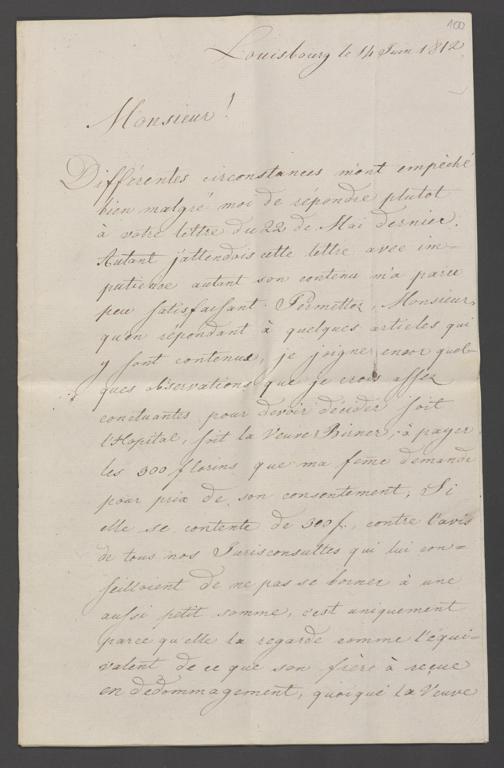 100
Louisbourg le 14 Juin 1812.
Monsieur!
Différentes circonstances m'ont empêché
bien malgré moi de répondre plutot
à votre lettre du 22 de Mai dernier.
Autant j'attendois cette lettre avec im-
patience autant son contenu m'a paru
peu satisfaisant. Permettez, Monsieur,
qu'en répondant à quelques articles qui
y sont contenus, je joigne encor quel-
ques observations que je crois assez
concluantes, pour devoir décider soit
l'Hopital, soit la Veuve Birner, à payer
les 300 florins que ma feme demande
pour prix de son consentement. Si
elle se contente de 300 f. contre l'avis
de tous nos Jurisconsultes qui lui con-
seilloient de ne pas se borner à une
aussi petit somme, c'est uniquement
parce qu'elle la regarde comme l'équi-
valent de ce que son frère à reçue
en dedommagement, quoique la Veuve